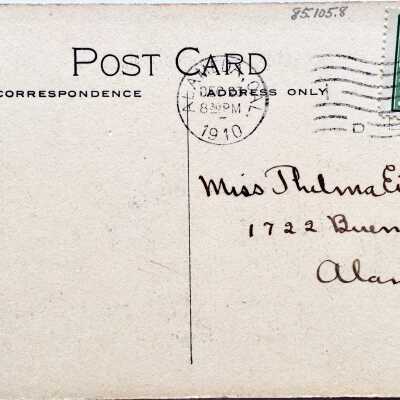 85.105.8
POST CARD
CORRESPONDENCE
ADDRESS ONLY
ALAMEDA, CAL.
DEC 23
8 30 PM
1910
D
Miss Thelma Ei
1722 Buen
Alam